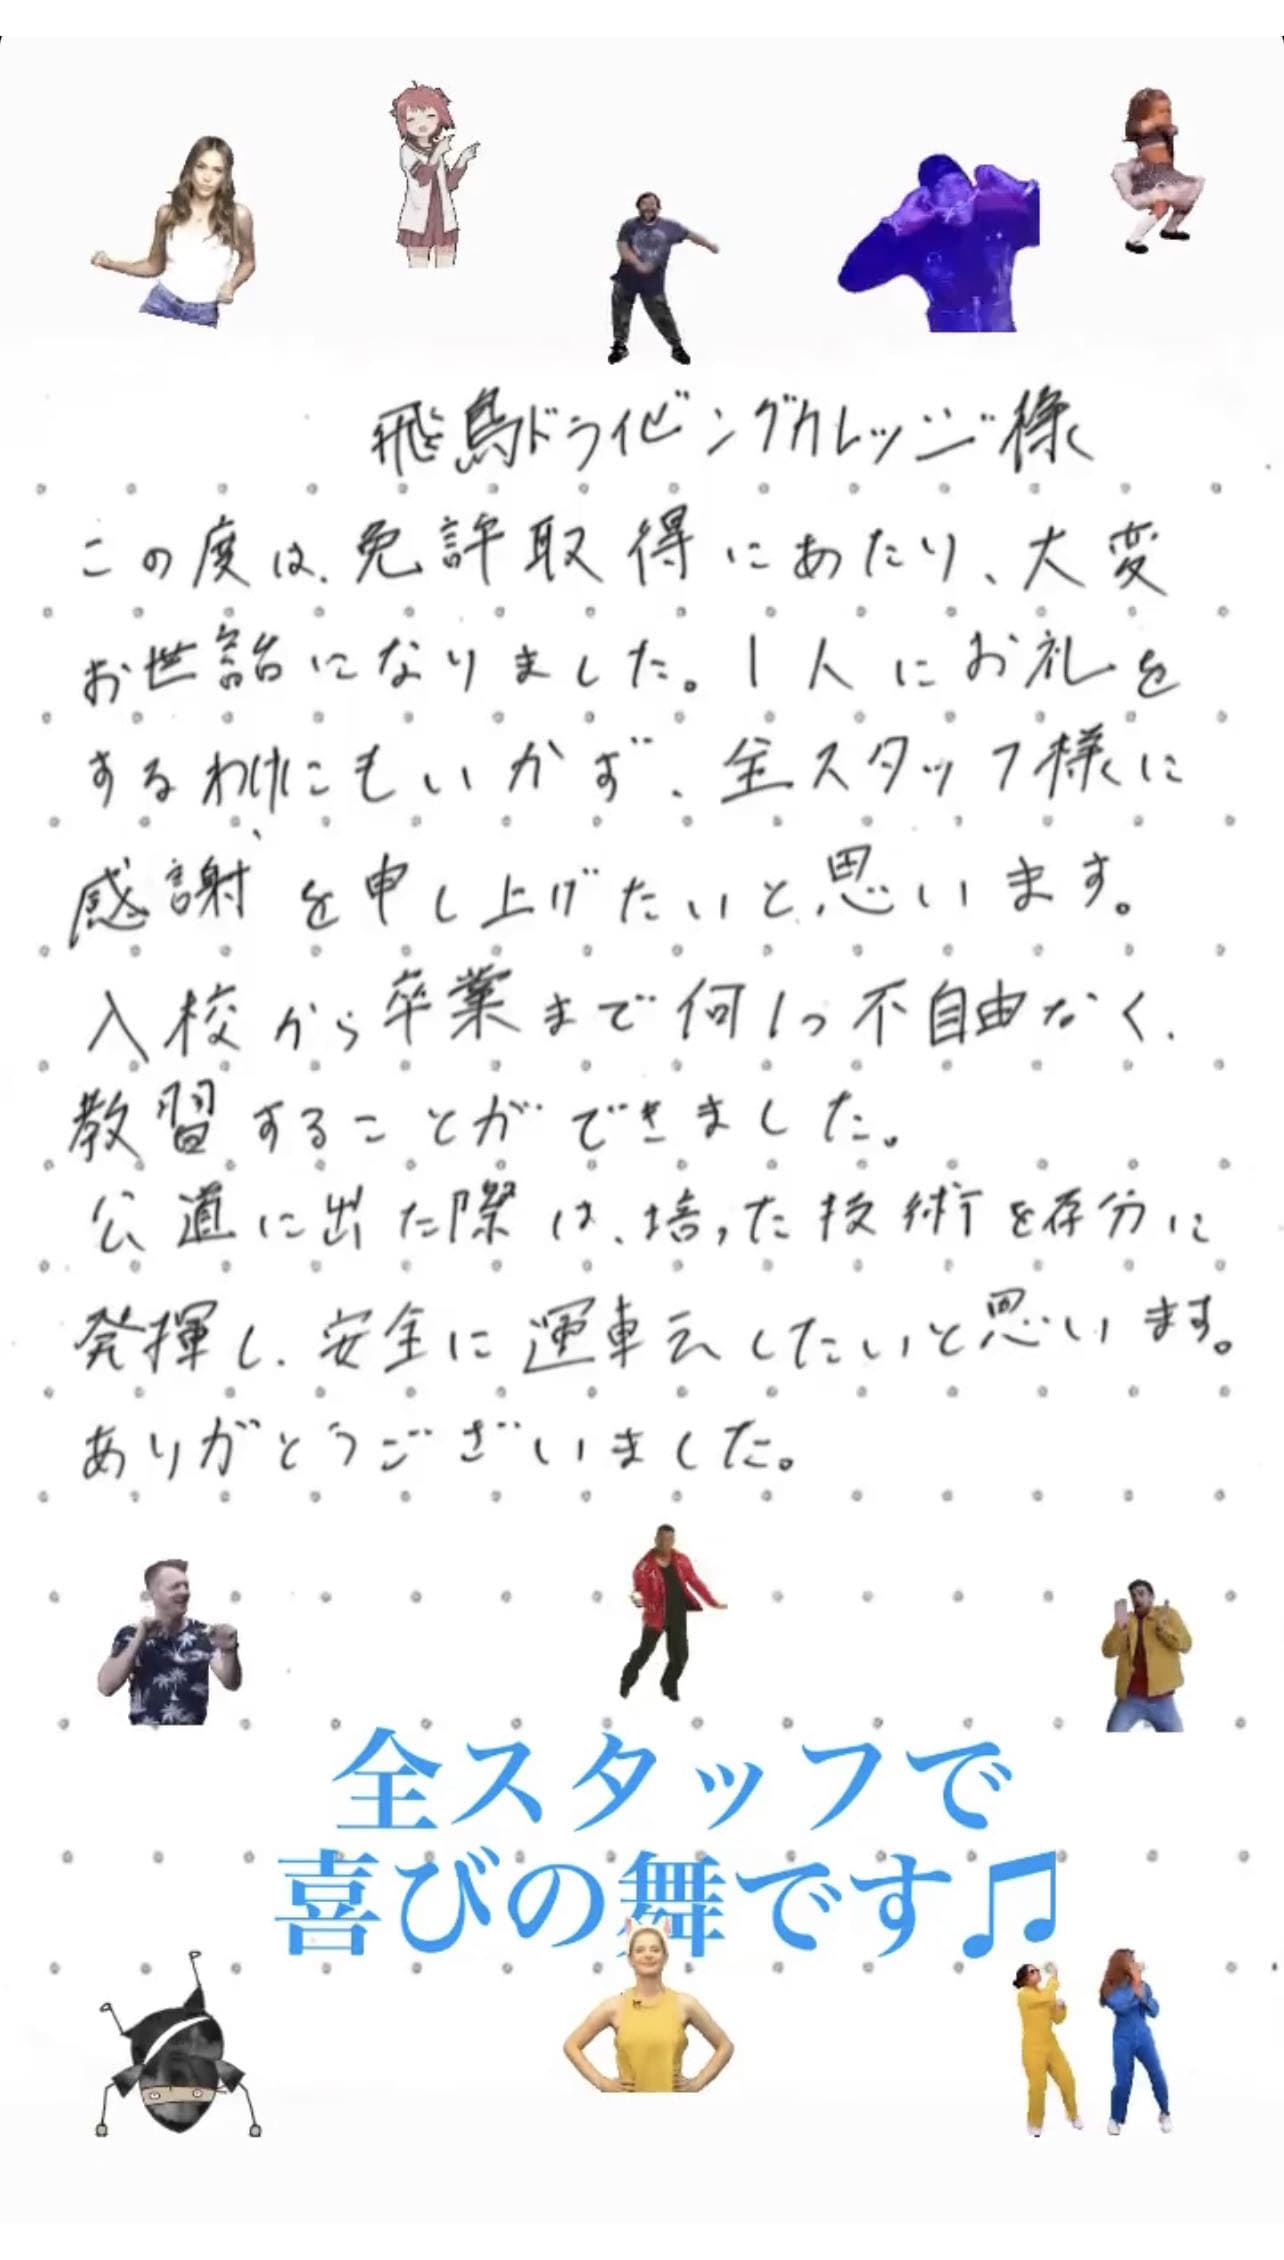 飛鳥ドライビングカレッジ様
この度は、免許取得にあたり、大変
お世話になりました。1人にお礼を
するわけにもいかず、全スタッフ様に
感謝を申し上げたいと、思います。
入校から卒業まで何1つ不自由なく、
教習することができました。
公道に出た際は、培った技術を存分に
発揮し、安全に運転したいと思います。
ありがとうございました。
全スタッフで
喜びの舞です♫